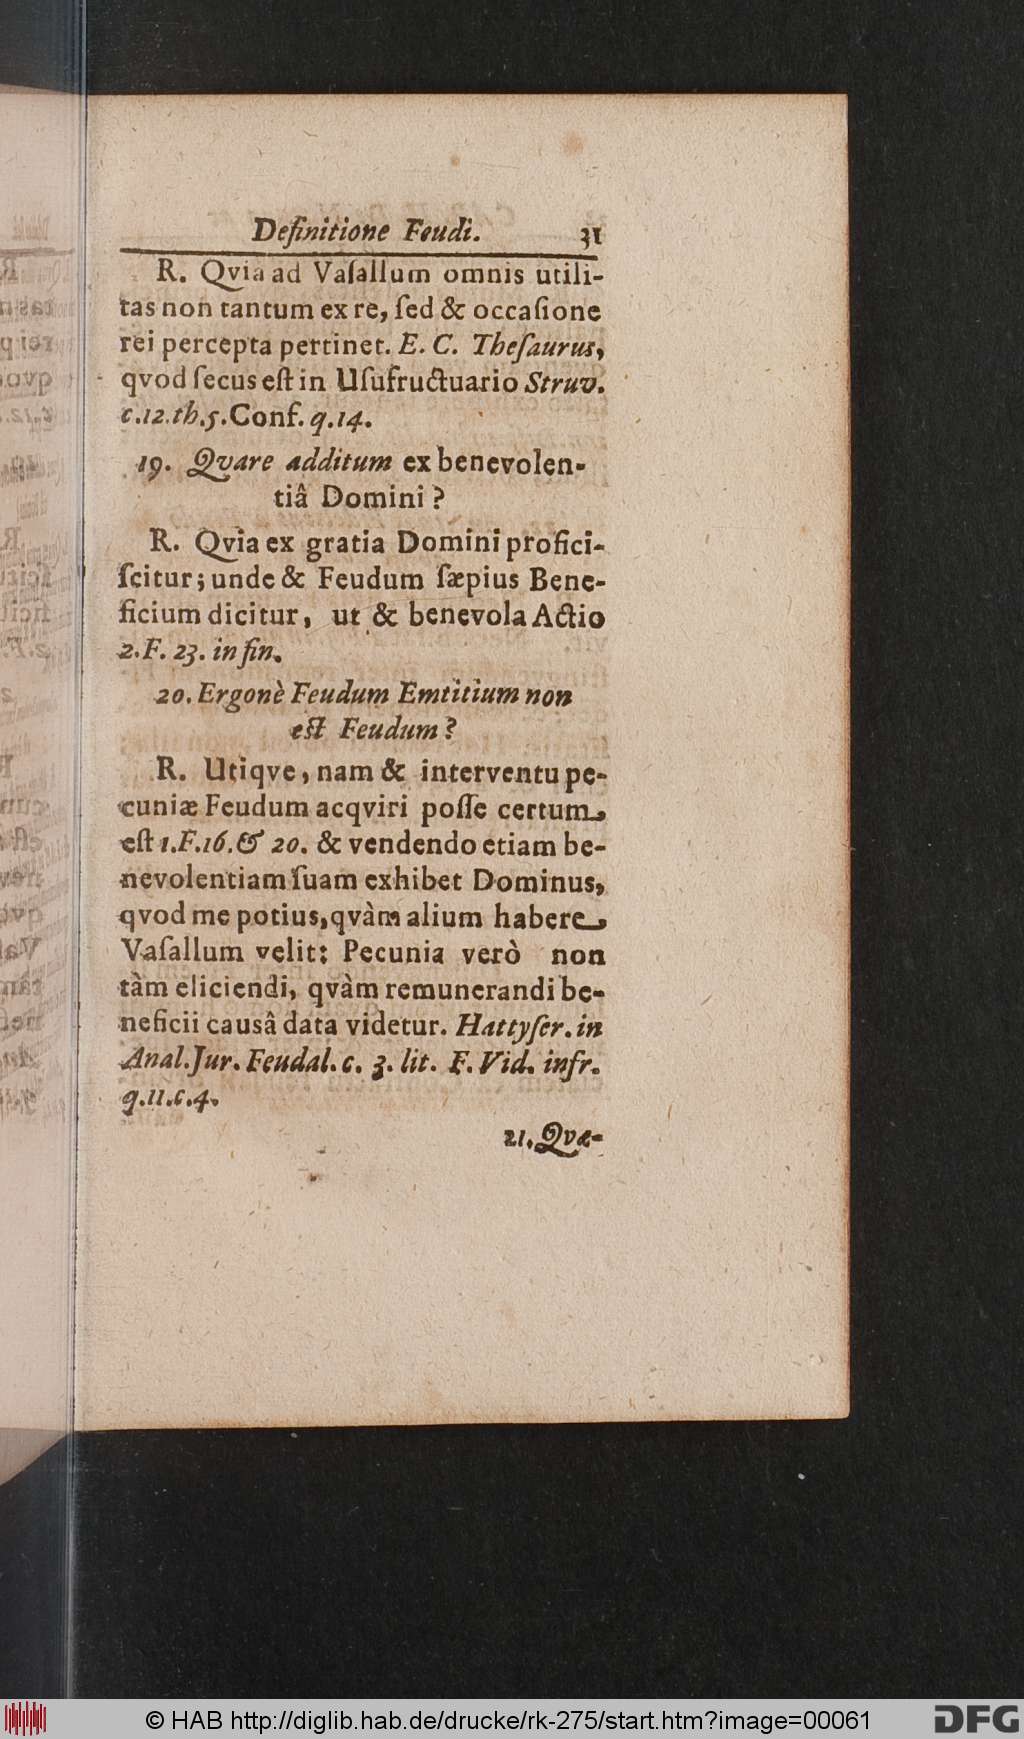 Definitione Feudi. 31
R. Qvia ad Vaſallum omnis utili-
tas non tantum ex re, ſed & occaſione
rei percepta pertinet. E. C. Theſaurus,
qvod ſecus eſt in Uſufructuario Struv.
c.12.th.5.Conf. q.14.
19. Qvare additum ex benevolen-
tiâ Domini?
R. Qvia ex gratia Domini profici-
ſcitur; unde & Feudum ſæpius Bene-
ficium dicitur, ut & benevola Actio
2.F. 23. in fin.
20. Ergonè Feudum Emtitium non
eſt Feudum?
R. Utiqve, nam & interventu pe-
cuniæ Feudum acqviri poſſe certum
eſt 1.F.16.& 20. & vendendo etiam be-
nevolentiam ſuam exhibet Dominus,
qvod me potius, qvàm alium habere
Vaſallum velit: Pecunia verò non
tàm eliciendi, qvàm remunerandi be-
neficii causâ data videtur. Hattyſer. in
Anal. Jur. Feudal. c. 3. lit. F. Vid. infr.
q.11.c.4.
21. Qvæ-
© HAB http://diglib.hab.de/drucke/rk-275/start.htm?image=00061
DFG